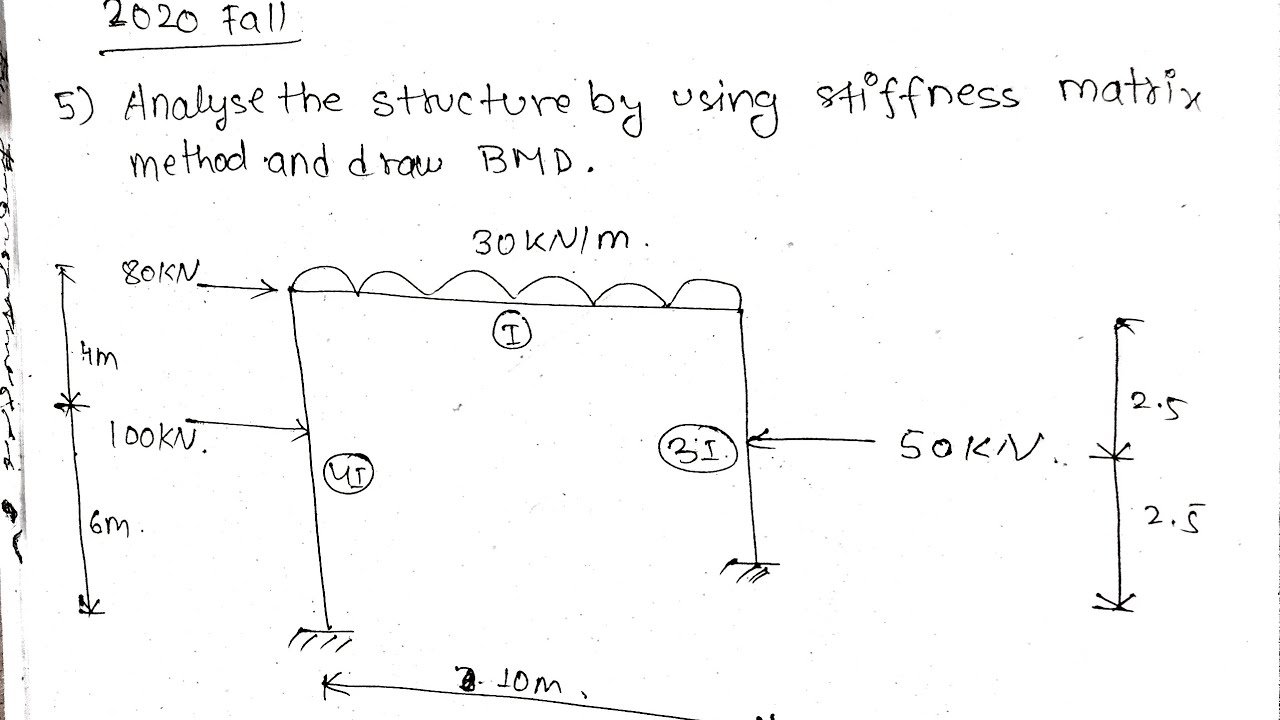 2020 Fall
5) Analyse the structure by using stiffness matrix
method and draw BMD.
30KN/m.
80KN
I
4m
2.5
100KN.
3I
50KN.
4I
6m.
2.5
10m.